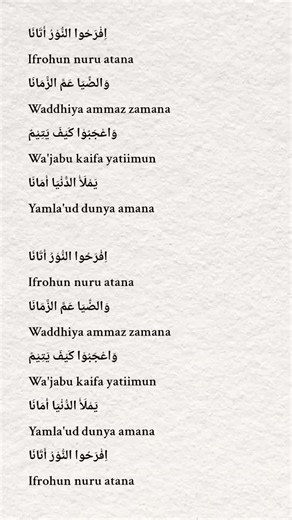 اِفْرَحُوا النُّوْرُ أَتَانَا
Ifrohun nuru atana
وَالضِّيَا عَمَّ الزَّمَانَا
Waddhiya ammaz zamana
وَاعْجَبُوْا كَيْفَ يَتِيْمٌ
Wa'jabu kaifa yatiimun
يَمْلَأُ الدُّنْيَا أَمَانَا
Yamla'ud dunya amana
اِفْرَحُوا النُّوْرُ أَتَانَا
Ifrohun nuru atana
وَالضِّيَا عَمَّ الزَّمَانَا
Waddhiya ammaz zamana
وَاعْجَبُوْا كَيْفَ يَتِيْمٌ
Wa'jabu kaifa yatiimun
يَمْلَأُ الدُّنْيَا أَمَانَا
Yamla'ud dunya amana
اِفْرَحُوا النُّوْرُ أَتَانَا
Ifrohun nuru atana